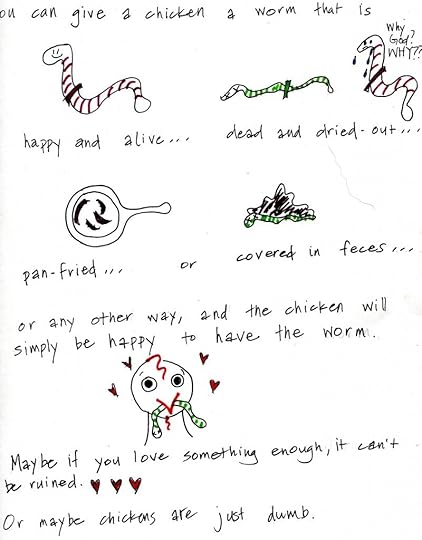 ou can give a chicken a worm that is
Why
God?
WHY??
happy and alive... dead and dried-out...
pan-fried... or covered in feces...
or any other way, and the chicken will
simply be happy to have the worm.
Maybe if you love something enough, it can't
be ruined.
Or maybe chickens are just dumb.